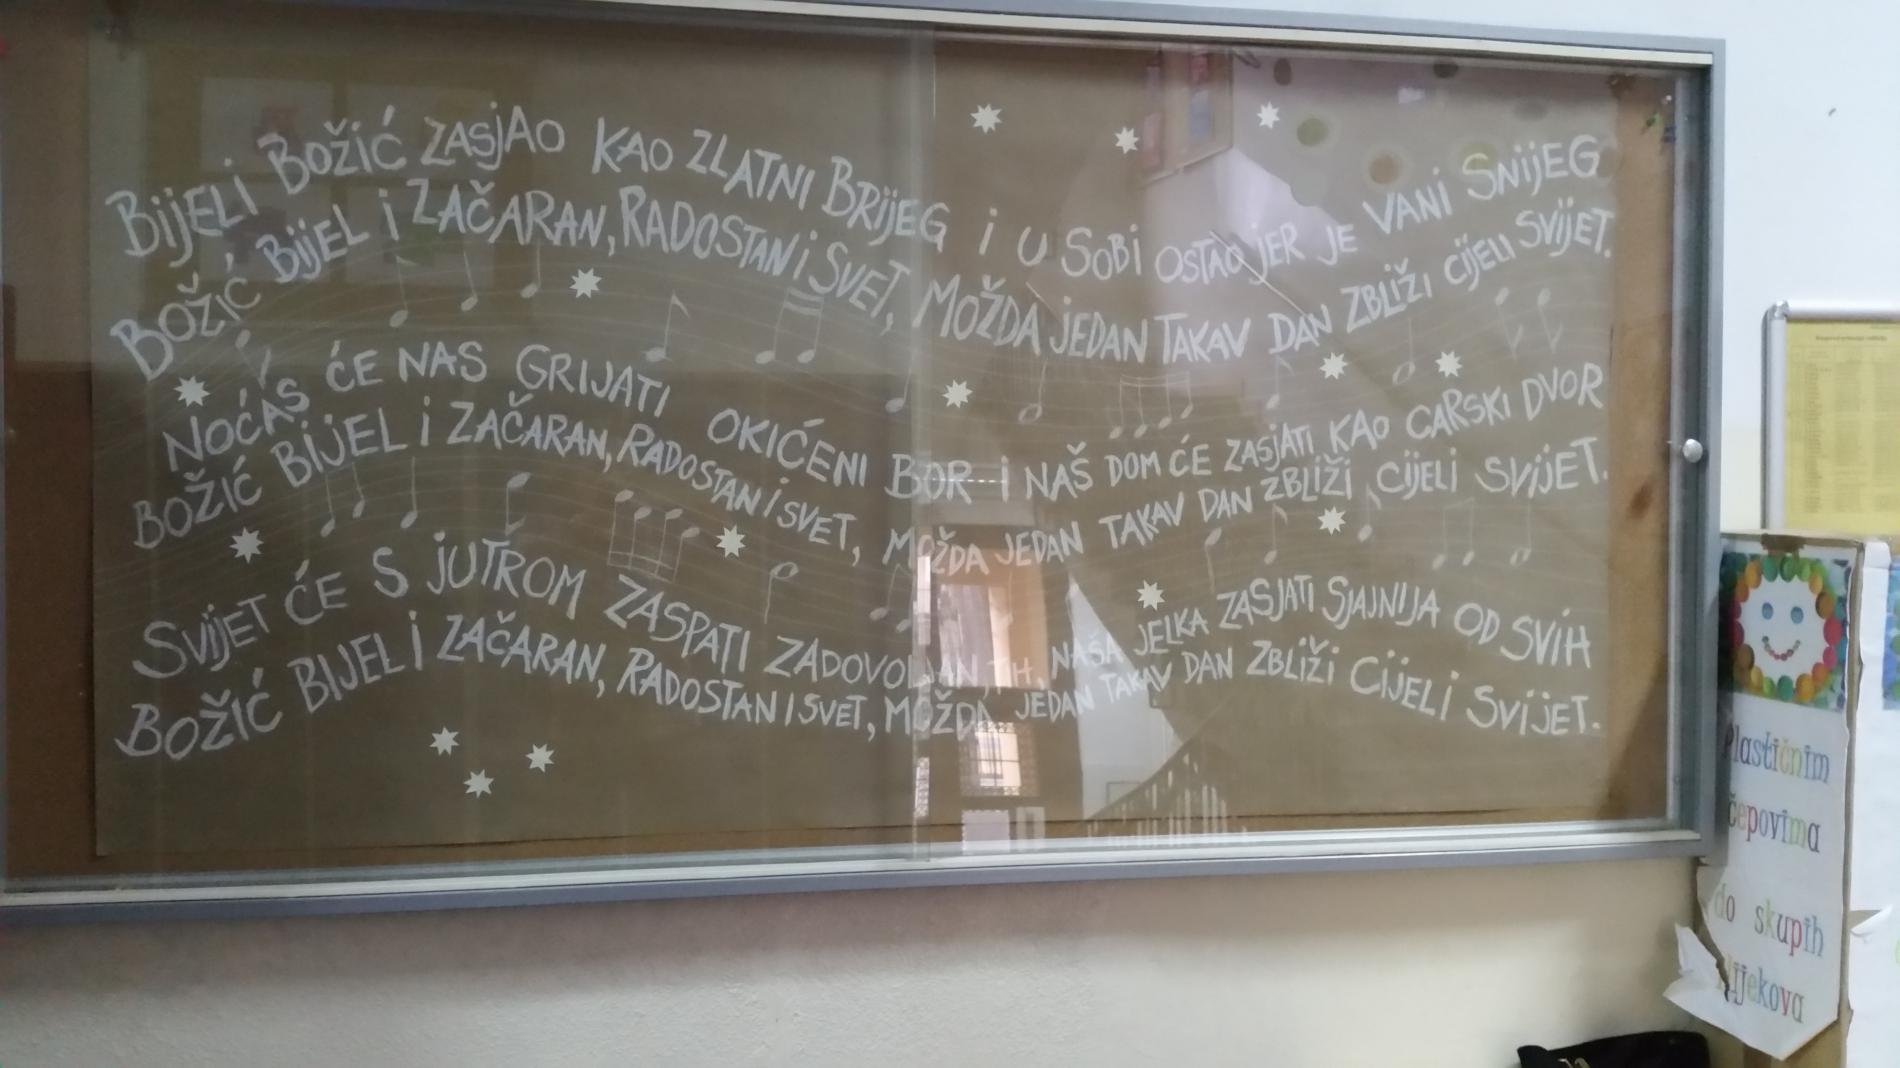 BIJELI BOŽIĆ ZASJAO KAO ZLATNI BRIJEG I U SOBI OSTAO JER JE VANI SNIJEG
BOŽIĆ BIJEL I ZAČARAN, RADOSTAN I SVET, MOŽDA JEDAN TAKAV DAN ZBLIŽI CIJELI SVIJET.
NOĆAS ĆE NAS GRIJATI OKIĆENI BOR I NAŠ DOM ĆE ZASJATI KAO CARSKI DVOR
BOŽIĆ BIJEL I ZAČARAN, RADOSTAN I SVET, MOŽDA JEDAN TAKAV DAN ZBLIŽI CIJELI SVIJET.
SVIJET ĆE S JUTROM ZASPATI ZADOVOLJAN, TIH, NAŠA JELKA ZASJATI SJAJNIJA OD SVIH
BOŽIĆ BIJEL I ZAČARAN, RADOSTAN I SVET, MOŽDA JEDAN TAKAV DAN ZBLIŽI CIJELI SVIJET.
Plastičnim
čepovima
do skupih
lijekova